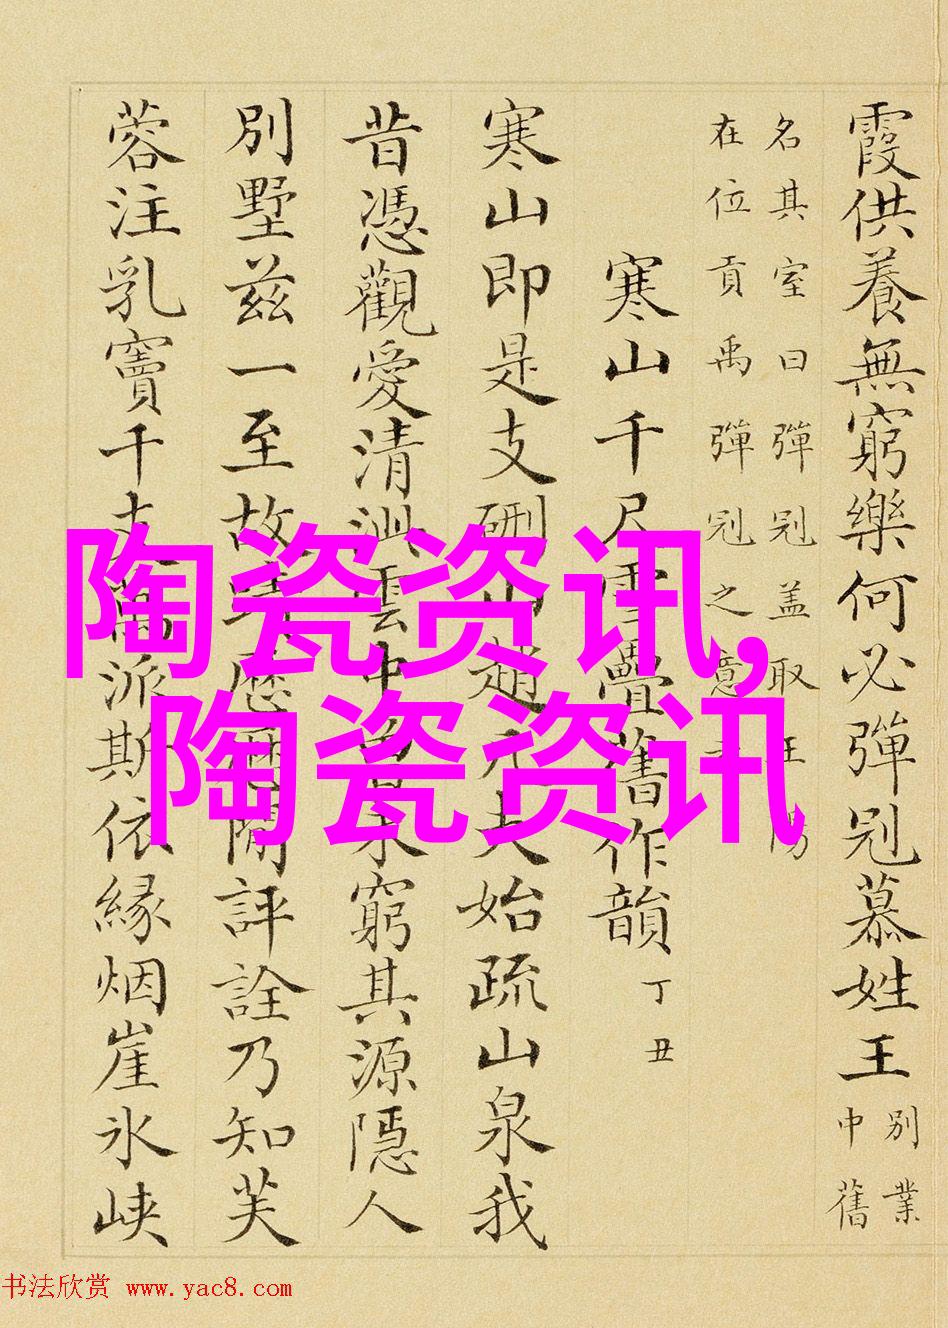 霞供養無窮樂何必彈冠慕姓王
別業
中舊
名其室曰彈冠盖取王陽
在位貢禹彈冠之意
寒山千尺雪疊舊作韻
丁丑
寒山即是支硎山趙凡夫始疏山泉我
昔憑觀愛清泚雲中
窮其源隱人
別墅兹一至故
閒評詮乃知芙
蓉注乳竇千支萬派斯依緣烟崖氷峡
陶瓷资讯,
陶瓷资讯
书法欣赏 www.yac8.com